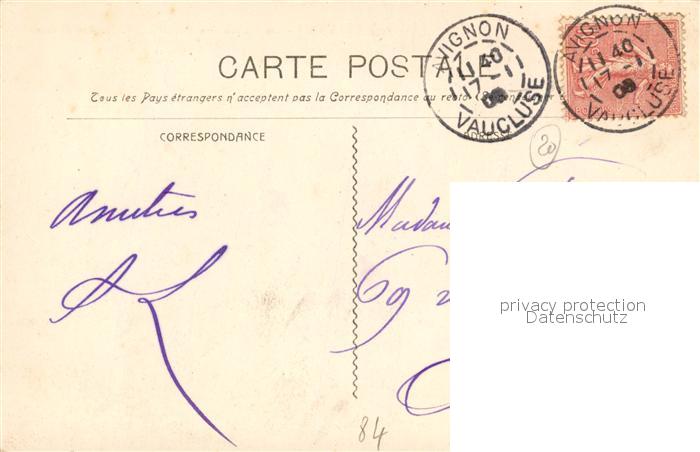 CARTE POSTALE
Tous les Pays étrangers n'acceptent pas la Correspondance au
CORRESPONDANCE
AVIGNON
11 40
17 - 11
08
VAUCLUSE
AVIGNON
11 40
17 - 11
08
VAUCLUSE
20
Amitiés
Madam
69
84
privacy protection
Datenschutz